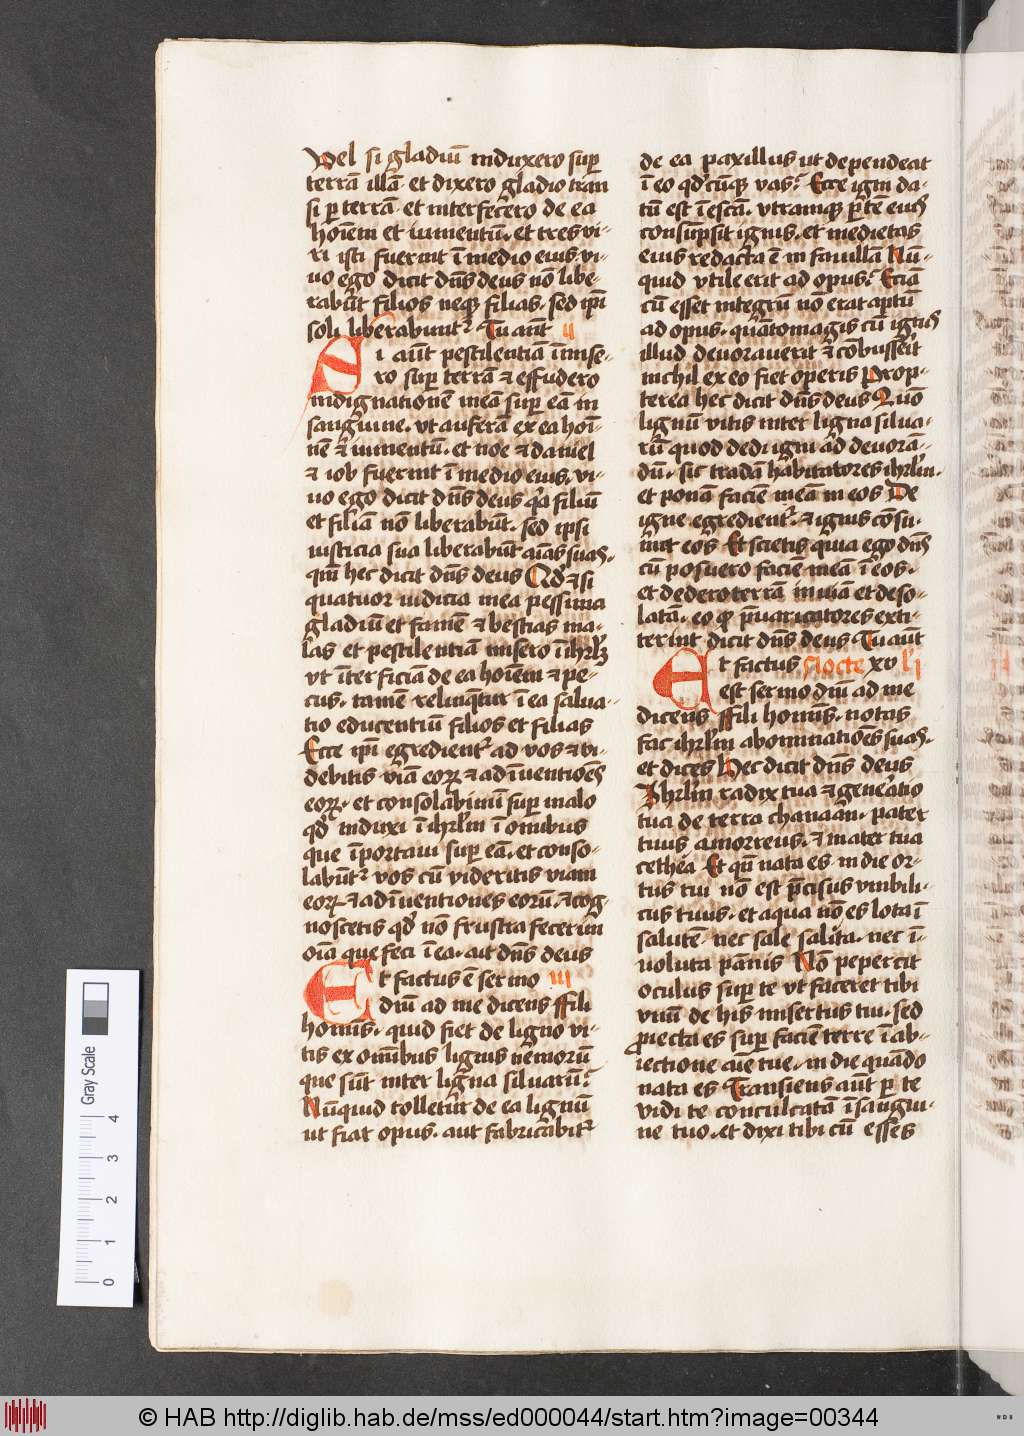 Vel si gladiū induxero sup
terrā illā et dixero gladio tran
si p terrā et interfecero de ea
hoīem et iumentū. et tres vi-
ri isti fuerint ī medio eius. vi-
uo ego dicit dn̄s deus nō libe-
rabūt filios neq; filias. sed ip̄i
soli liberabunt͛ Tu aūt ij
Si aūt pestilentiā īmise-
ro sup terrā et effudero
indignationē meā sup eā in
sanguine. vt auferā ex ea hoī-
nē et iumentū. et noe et daniel
et iob fuerint ī medio eius. vi-
uo ego dicit dn̄s deus qꝛ filiū
et filiā nō liberabūt. sed ipsi
iusticia sua liberabūt aīas suas.
qm̄ hec dicit dn̄s deus Qd̛ et si
quatuor iudicia mea pessima
gladiū et famē et bestias ma-
las et pestilentiā misero ī ihrlꝫ
vt īterficiā de ea hoīem et pe-
cus. tamē relinq̄tur ī ea salua-
tio educentiū filios et filias
Ecce ip̄i egredient͛ ad vos et vi-
debitis viā eoꝝ et adīuentiōes
eoꝝ. et consolabimī sup malo
qd̛ induxi ī ihrlm̄ ī om̄ibus
que īportaui sup eā. et conso-
labūt͛ vos cū videritis viam
eoꝝ et adīuentiones eorū. et cog-
noscetis qd̛ nō frustra fecerim
oīa que feci ī ea. ait dn̄s deus
Et factus ē sermo iii
dn̄i ad me dicens ffili
homīs. quid fiet de ligno vi-
tis ex om̄ibus lignis nēmorū
que sūt inter ligna siluarū?
Nūquid tolletur de ea lignū
ut fiat opus. aut fabricabit͛
de ea paxillus ut dependeat
ī eo qd̛cūq; vas? Ecce igni da-
tū est ī escā. vtramq; p̄tē eius
consūpsit ignis. et medietas
eius redacta ē in fauillā Nū-
quid vtile erit ad opus? Eciā
cū esset integrū nō erat aptū
ad opus. quātomagis cū ignis
illud deuorauerit et cōbusserit
nichil ex eo fiet operis Prop-
terea hec dicit dn̄s deus Quō
lignū vitis inter ligna silua-
rū quod dedi igni ad deuorā-
dū. sic tradā habitatores ihrlm̄.
et ponā faciē meā in eos De
igne egredient͛. et ignis cōsu-
met eos Et scietis quia ego dn̄s
cū posuero faciē meā ī eos.
et dedero terrā inuiā et deso-
latā. eo qͦ p̄uaricatores exti-
terint dicit dn̄s deus Tu aūt
Et factus Nocte xv lj
est sermo dn̄i ad me
dicens ffili homīs. notas
fac ihrlm̄ abominatiōes suas.
et dices Hec dicit dn̄s deus
Ihrlm̄ radix tua et generatio
tua de terra chanaan. pater
tuus amorreus. et mater tua
cethea Et qn̄ nata es in die or-
tus tui nō est p̄cisus vmbili-
cus tuus. et aqua nō es lota ī
salutē. nec sale salita. nec ī-
uoluta pānis Nō pepercit
oculus sup te vt faceret tibi
vnū de his misertus tui. sed
proiecta es sup faciē terre ī ab-
iectione aīe tue. in die quādo
nata es Transiens aūt p te
vidi te conculcatā ī sangui-
ne tuo. et dixi tibi cū esses
Gray Scale
0 1 2 3 4
© HAB http://diglib.hab.de/mss/ed000044/start.htm?image=00344